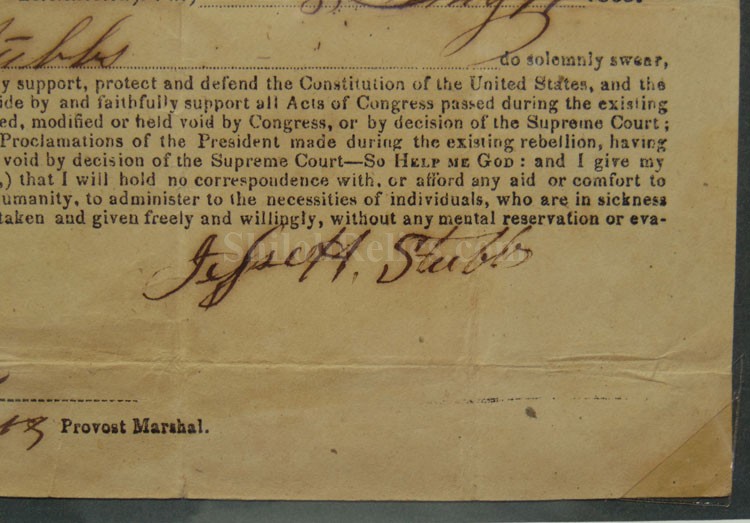 Stubbs do solemnly swear,
y support, protect and defend the Constitution of the United States, and the
ide by and faithfully support all Acts of Congress passed during the existing
ed, modified or held void by Congress, or by decision of the Supreme Court;
Proclamations of the President made during the existing rebellion, having
void by decision of the Supreme Court—So Help me God: and I give my
,) that I will hold no correspondence with, or afford any aid or comfort to
umanity, to administer to the necessities of individuals, who are in sickness
taken and given freely and willingly, without any mental reservation or eva-
Jesse H. Stubbs
Provost Marshal.